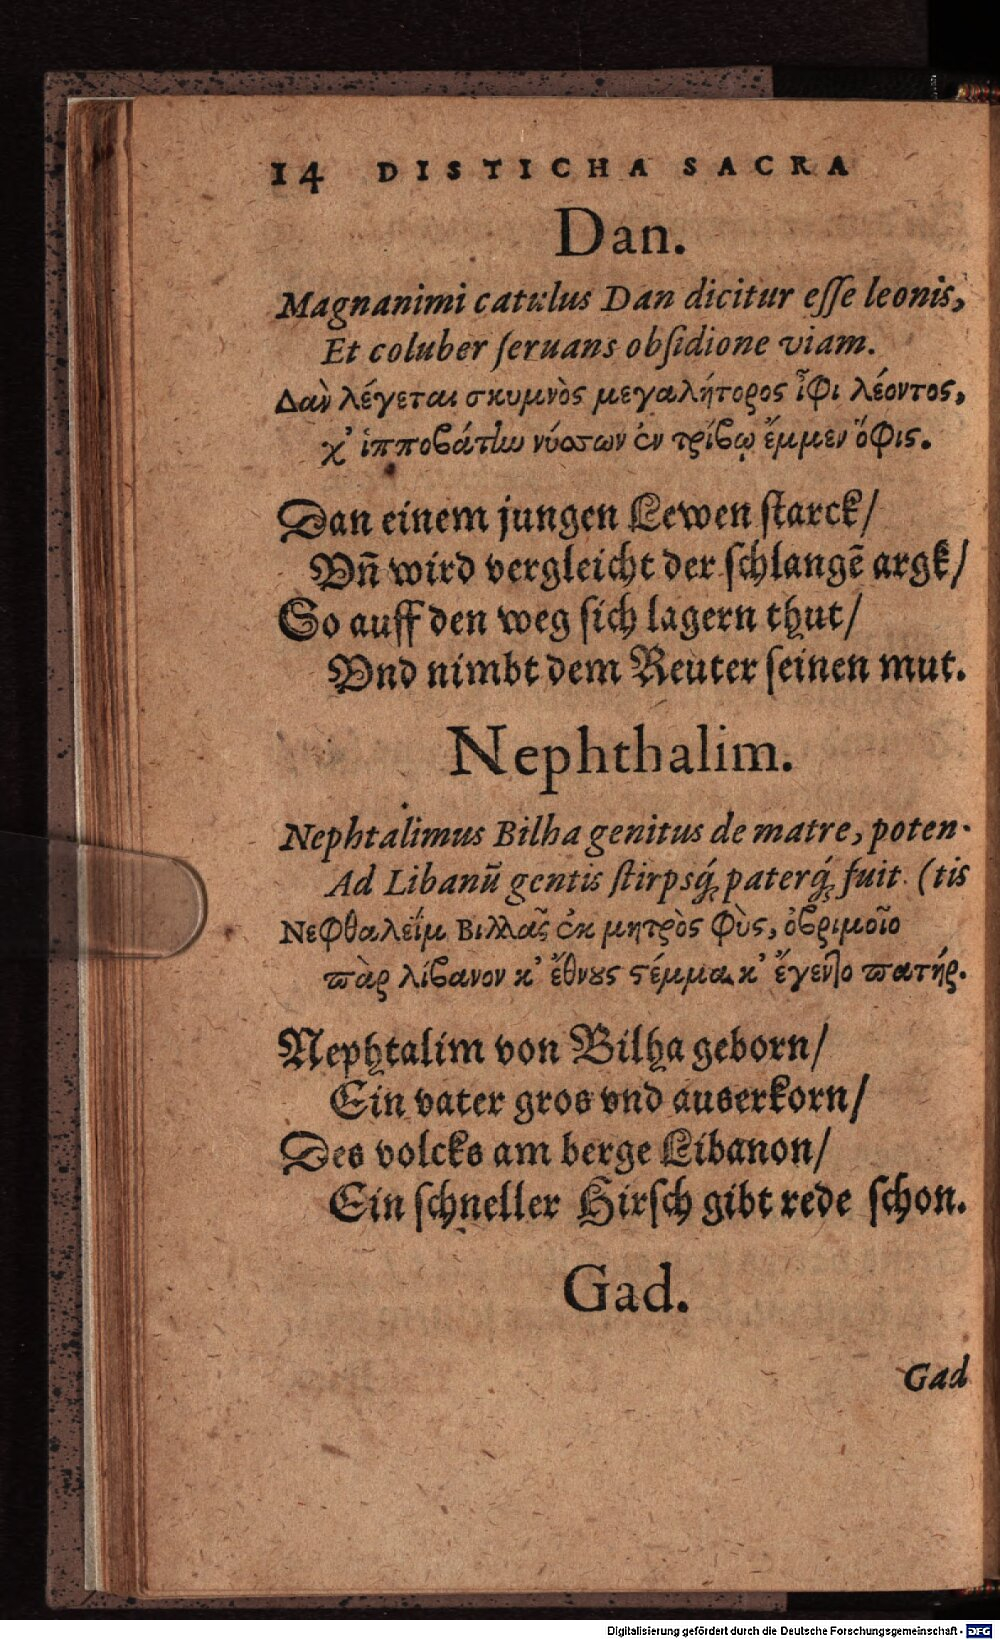 14 DISTICHA SACRA
Dan.
Magnanimi catulus Dan dicitur eſſe leonis,
Et coluber ſeruans obſidione viam.
Δαὶν λέγεται σκυμνὸς μεγαλήτορος ἶφι λέοντος,
χ' ἱπποβάτην νύσσων ἐν τρίβῳ ἔμμεν ὄφις.
Dan einem jungen Lewen ſtarck/
Vn̄ wird vergleicht der ſchlangē argk/
So auff den weg ſich lagern thut/
Vnd nimbt dem Reuter ſeinen mut.
Nephthalim.
Nephtalimus Bilha genitus de matre, poten-
Ad Libanū gentis ſtirpsq́; paterq́; fuit. (tis
Νεφθαλεΐμ Βιλλᾶς ἐκ μητρὸς φὺς, ὀβριμοῖο
παρ λίβανον κ' ἔθνους στέμμα κ' ἔγεντο πατήρ.
Nephtalim von Bilha geborn/
Ein vater gros vnd auserkorn/
Des volcks am berge Libanon/
Ein ſchneller Hirſch gibt rede ſchon.
Gad.
Gad
Digitalisierung gefördert durch die Deutsche Forschungsgemeinschaft - DFG